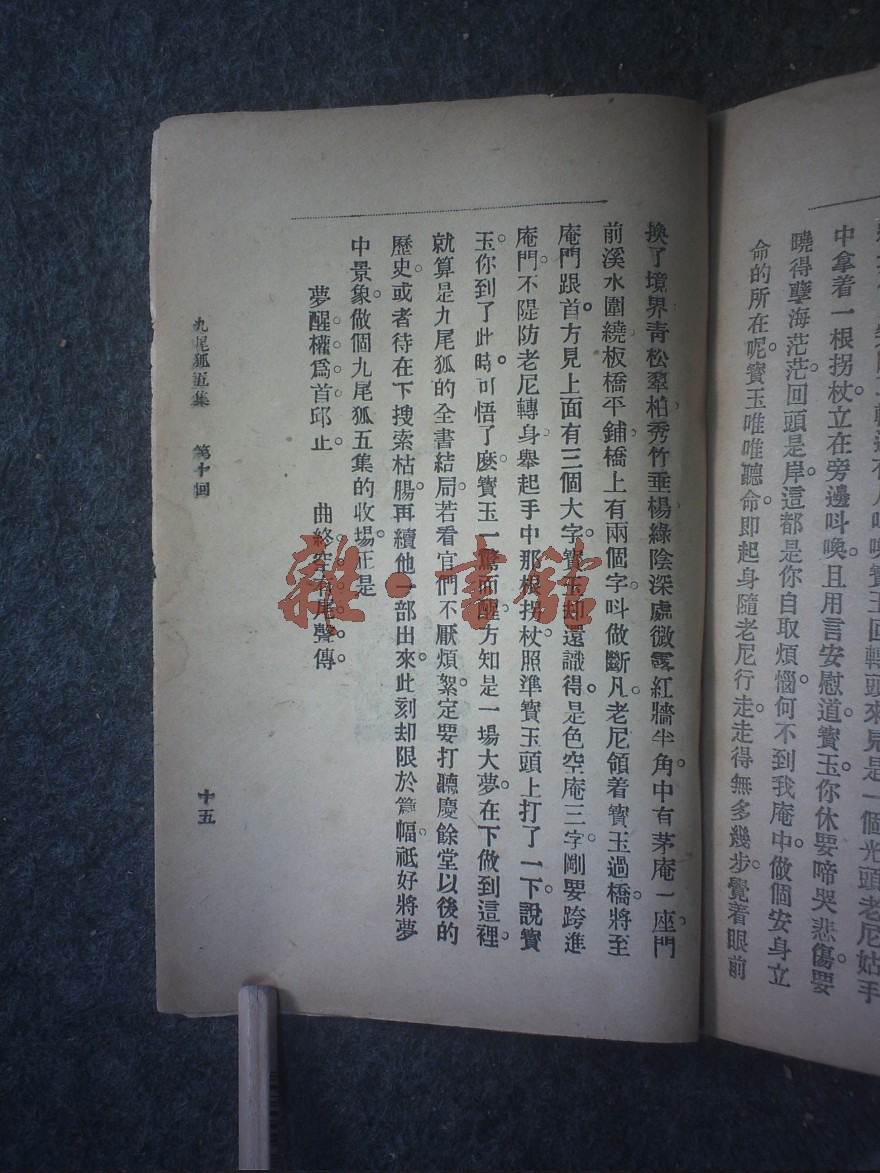 中拿着一根拐杖立在旁邊叫喚。且用言安慰道。寳玉。你休要啼哭悲傷。要
曉得孽海茫茫。回頭是岸。這都是你自取煩惱。何不到我庵中。做個安身立
命的所在呢。寳玉唯唯聽命。即起身隨老尼行走。走得無多幾步。覺着眼前
換了境界。青松翠柏。秀竹垂楊。綠陰深處。微露紅牆半角。中有茅庵一座。門
前溪水圍繞。板橋平鋪。橋上有兩個字。叫做斷凡。老尼領着寳玉過橋。將至
庵門跟首。方見上面有三個大字。寳玉却還識得。是色空庵三字。剛要跨進
庵門。不隄防老尼轉身。舉起手中那根拐杖。照準寳玉頭上打了一下。說寳
玉。你到了此時。可悟了麽。寳玉一驚而醒。方知是一塲大夢。在下做到這裡。
就算是九尾狐的全書結局。若看官們不厭煩絮。定要打聽慶餘堂以後的
歷史。或者待在下搜索枯腸。再續他一部出來。此刻却限於篇幅。祗好將夢
中景象。做個九尾狐五集的收塲。正是
夢醒權爲首邱止。 曲終 有尾聲傳。
九尾狐五集 第十回 十五
雜·書館